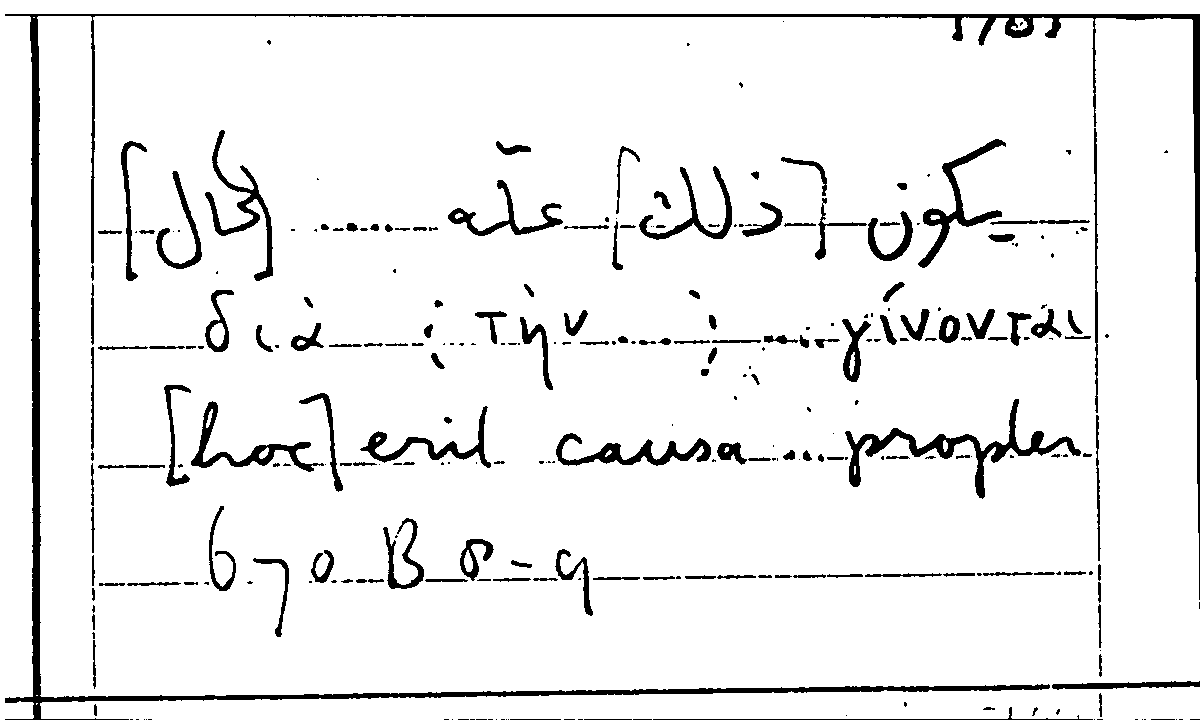 يكون [ذلك] علّه ..... [لحال]
διὰ ⋮ τὴν .... ⋮ .... γίνονται
[hoc] erit causa ... propter
670 B 8-9